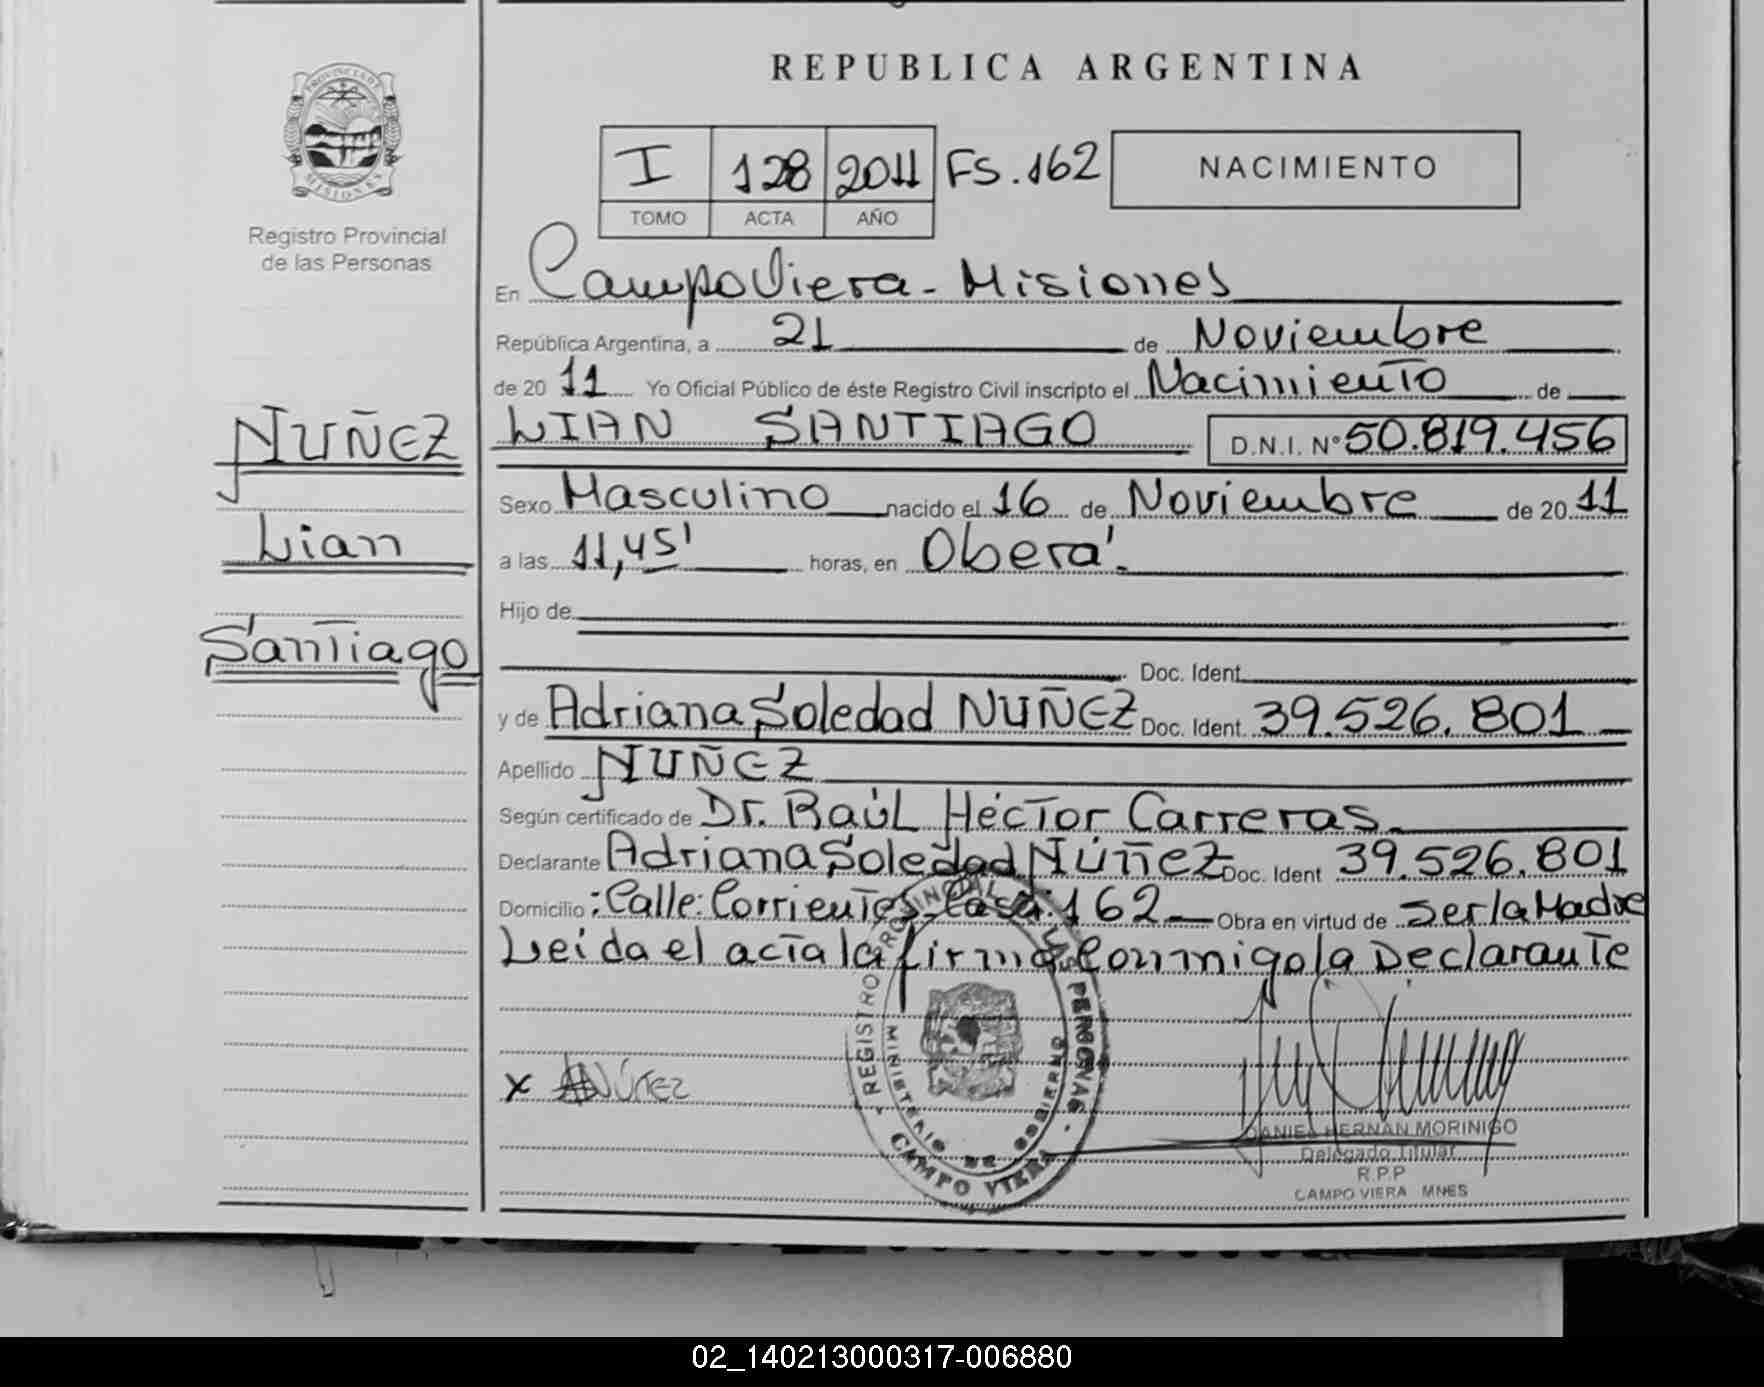 REPUBLICA ARGENTINA
PROVINCIA DE MISIONES
Registro Provincial
de las Personas
I 128 2011 FS.162
TOMO ACTA AÑO
NACIMIENTO
En Campo Viera - Misiones
República Argentina, a 21 de Noviembre
de 20 11 Yo Oficial Público de éste Registro Civil inscripto el Nacimiento de
NUÑEZ
Lian
Santiago
LIAN SANTIAGO D.N.I. Nº 50.819.456
Sexo Masculino nacido el 16 de Noviembre de 20 11
a las 11,45' horas, en Oberá.
Hijo de
Doc. Ident.
y de Adriana Soledad NUÑEZ Doc. Ident. 39.526.801
Apellido NUÑEZ
Según certificado de Dr. Raúl Héctor Carreras
Declarante Adriana Soledad Núñez Doc. Ident 39.526.801
Domicilio: Calle: Corrientes Casa: 162 Obra en virtud de ser la Madre
Leída el acta la firma Conmigo la Declarante
x Núñez
REGISTRO PROVINCIAL DE LAS PERSONAS
MINISTERIO DE GOBIERNO
CAMPO VIERA
DANIEL HERNAN MORINIGO
Delegado Titular
R.P.P
CAMPO VIERA MNES
02_140213000317-006880